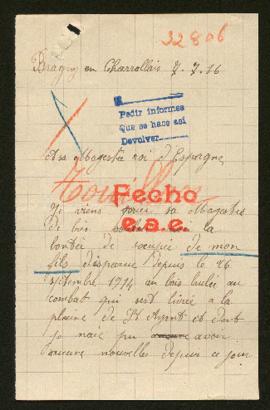 32806
Bragny en Charrollais 7.7.16
Pedir informes
Que se hace así
Devolver
A sa Magestée roi d'Espagne
Fecho
e.a.e.
Je viens prier sa Magestée
de bien la
bontée de de mon
fils disparue depuis le 26
septembre 1914 au bois
combat qui sest livrée a la
plaine de St et dont
je naie pu avoir
aucune nouvelles depuis ce jour